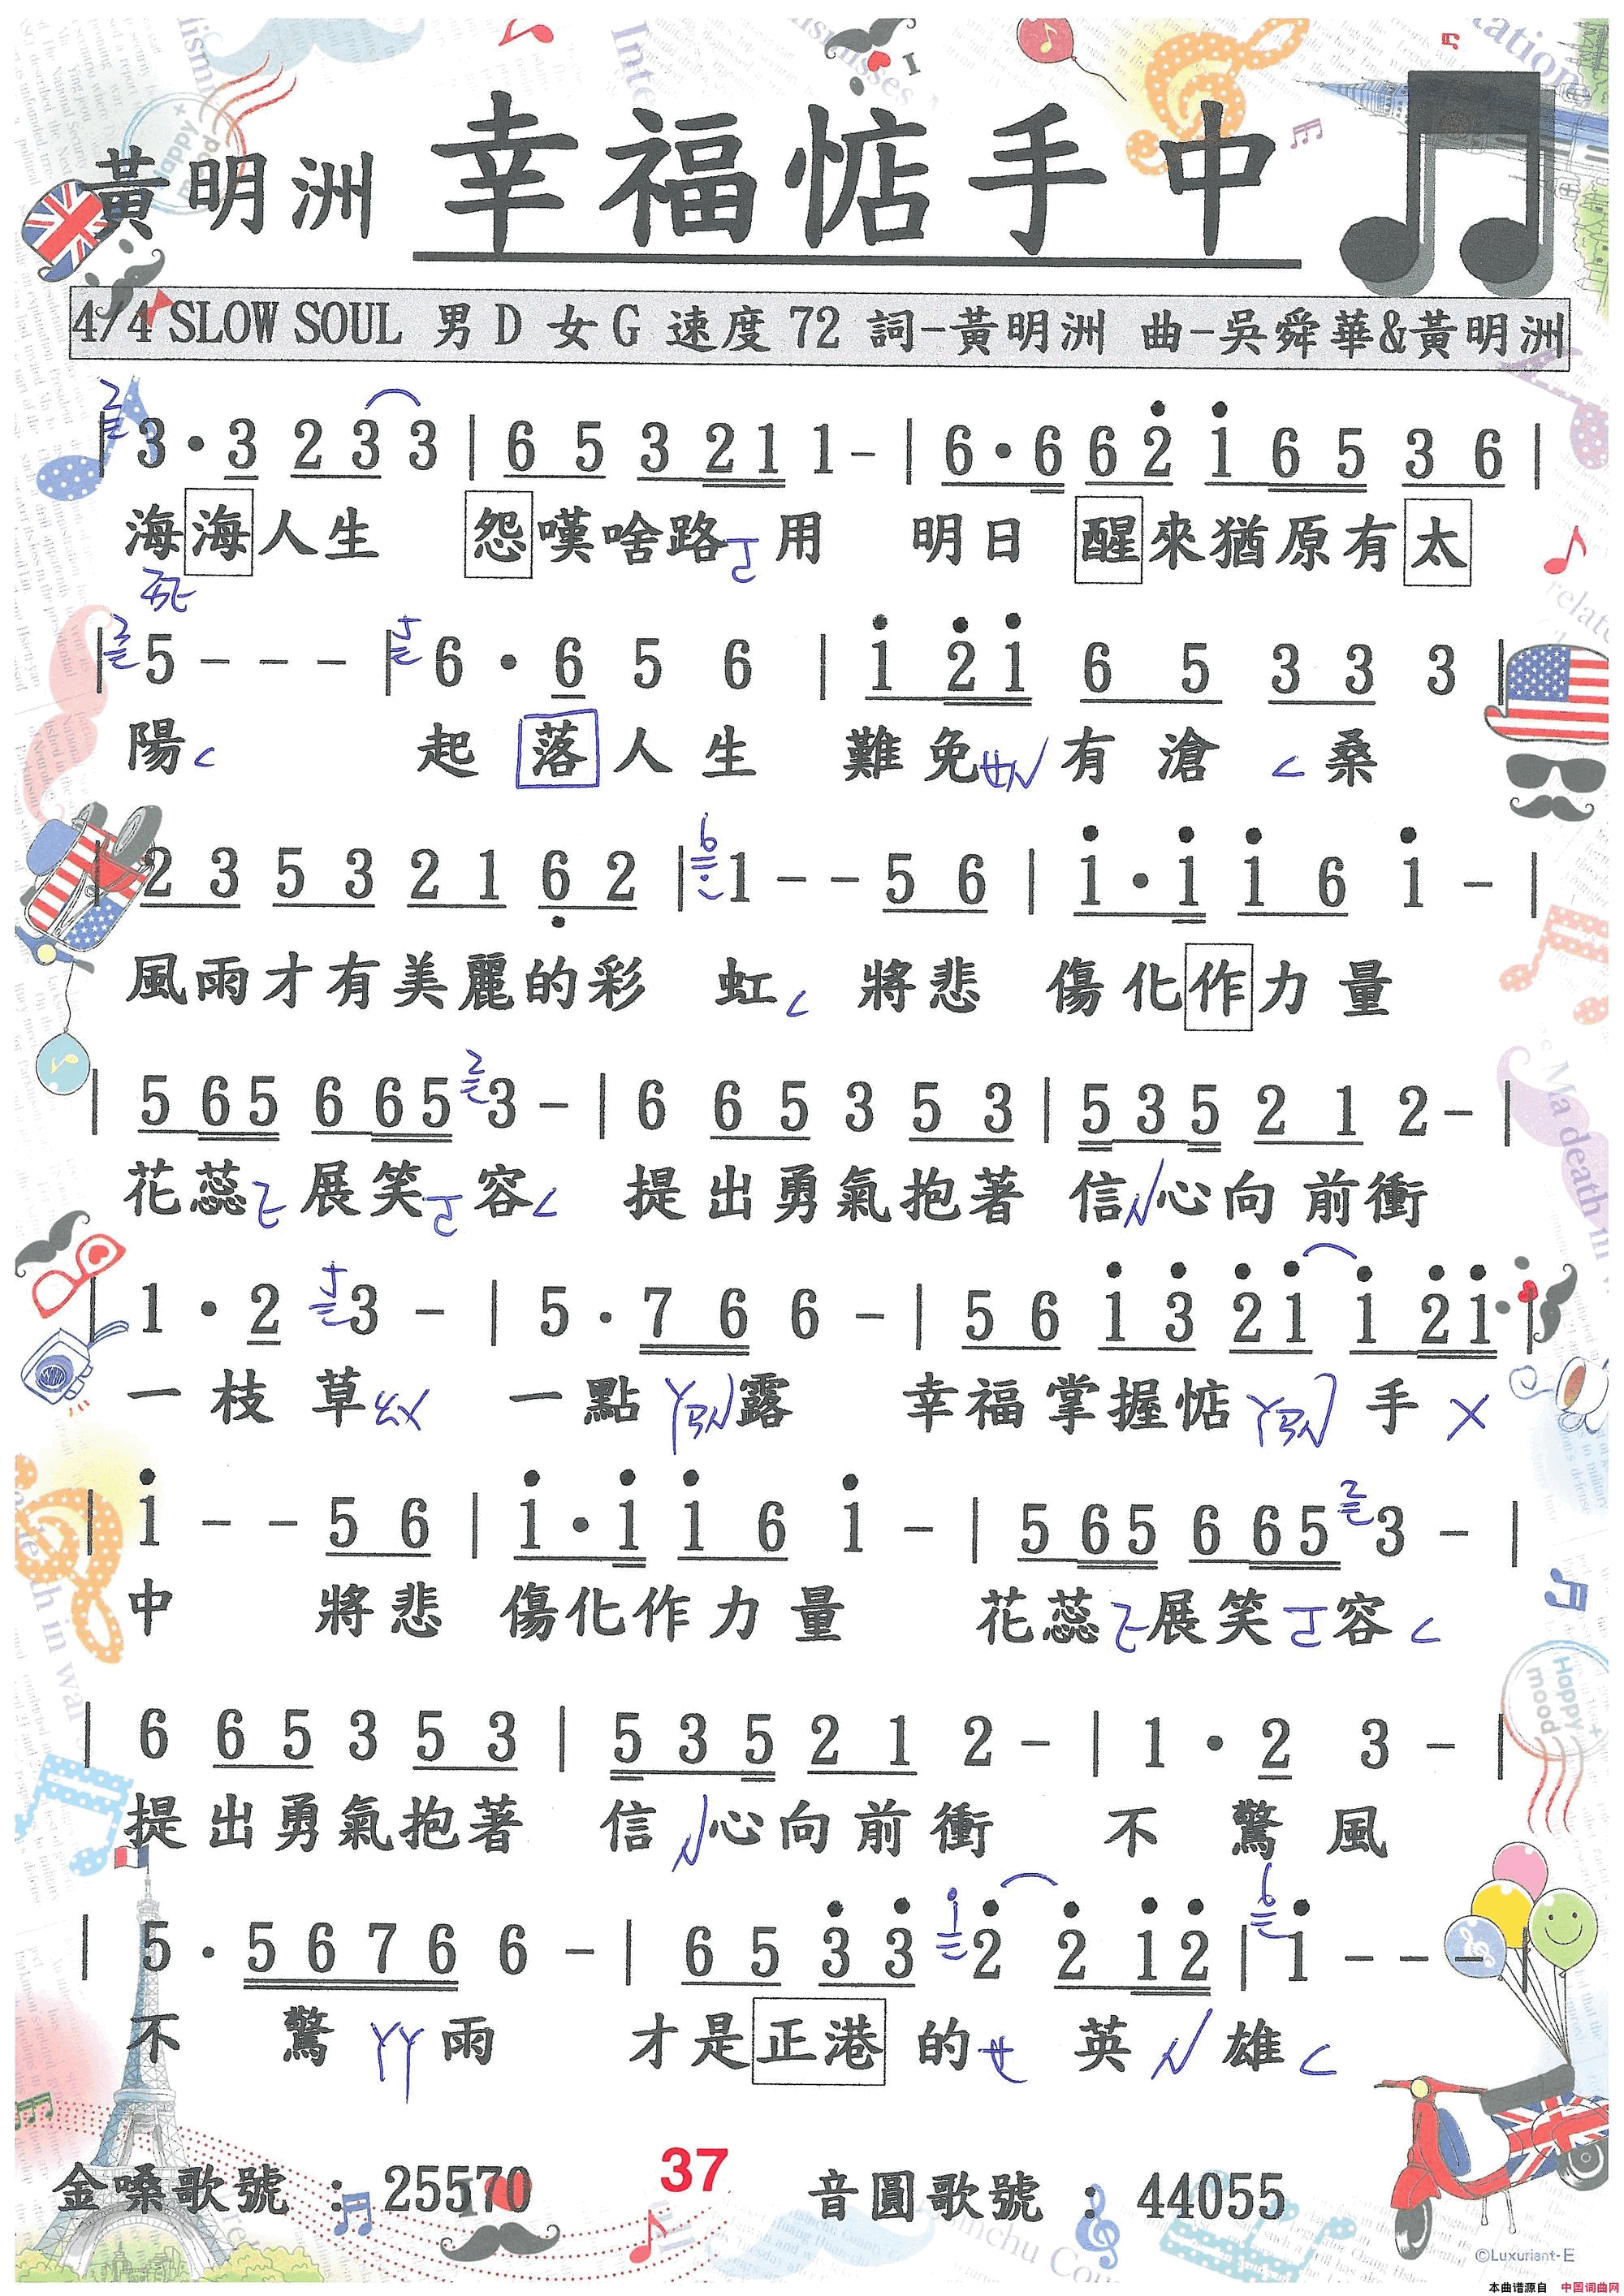 黃明洲 幸福惦手中
4/4 SLOW SOUL 男 D 女 G 速度 72 詞-黃明洲 曲-吳舜華&黃明洲
| 3 · 3 2 3 3 | 6 5 3 2 1 1 - | 6 · 6 6 2̇ 1̇ 6 5 3 6 |
海海人生 怨嘆啥路用 明日醒來猶原有太
| 5 - - - | 6 · 6 5 6 | 1̇ 2̇ 1̇ 6 5 3 3 3 |
陽 起落人生 難免有滄桑
| 2 3 5 3 2 1 6̣ 2 | 1 - - 5 6 | 1̇ · 1̇ 1̇ 6 1̇ - |
風雨才有美麗的彩 虹 將悲 傷化作力量
| 5 6 5 6 6 5 3 - | 6 6 5 3 5 3 | 5 3 5 2 1 2 - |
花蕊展笑容 提出勇氣抱著 信心向前衝
| 1 · 2 3 - | 5 · 7 6 6 - | 5 6 1̇ 3̇ 2̇ 1̇ 1̇ 2̇ 1̇ |
一枝草 一點露 幸福掌握惦手
| 1̇ - - 5 6 | 1̇ · 1̇ 1̇ 6 1̇ - | 5 6 5 6 6 5 3 - |
中 將悲 傷化作力量 花蕊展笑容
| 6 6 5 3 5 3 | 5 3 5 2 1 2 - | 1 · 2 3 - |
提出勇氣抱著 信心向前衝 不驚風
| 5 · 5 6 7 6 6 - | 6 5 3̇ 3̇ 2̇ 2̇ 1̇ 2̇ | 1̇ - - - |
不驚雨 才是正港的英雄
金嗓歌號 : 25570 37 音圓歌號 : 44055
©Luxuriant-E
本曲谱源自 中国词曲网